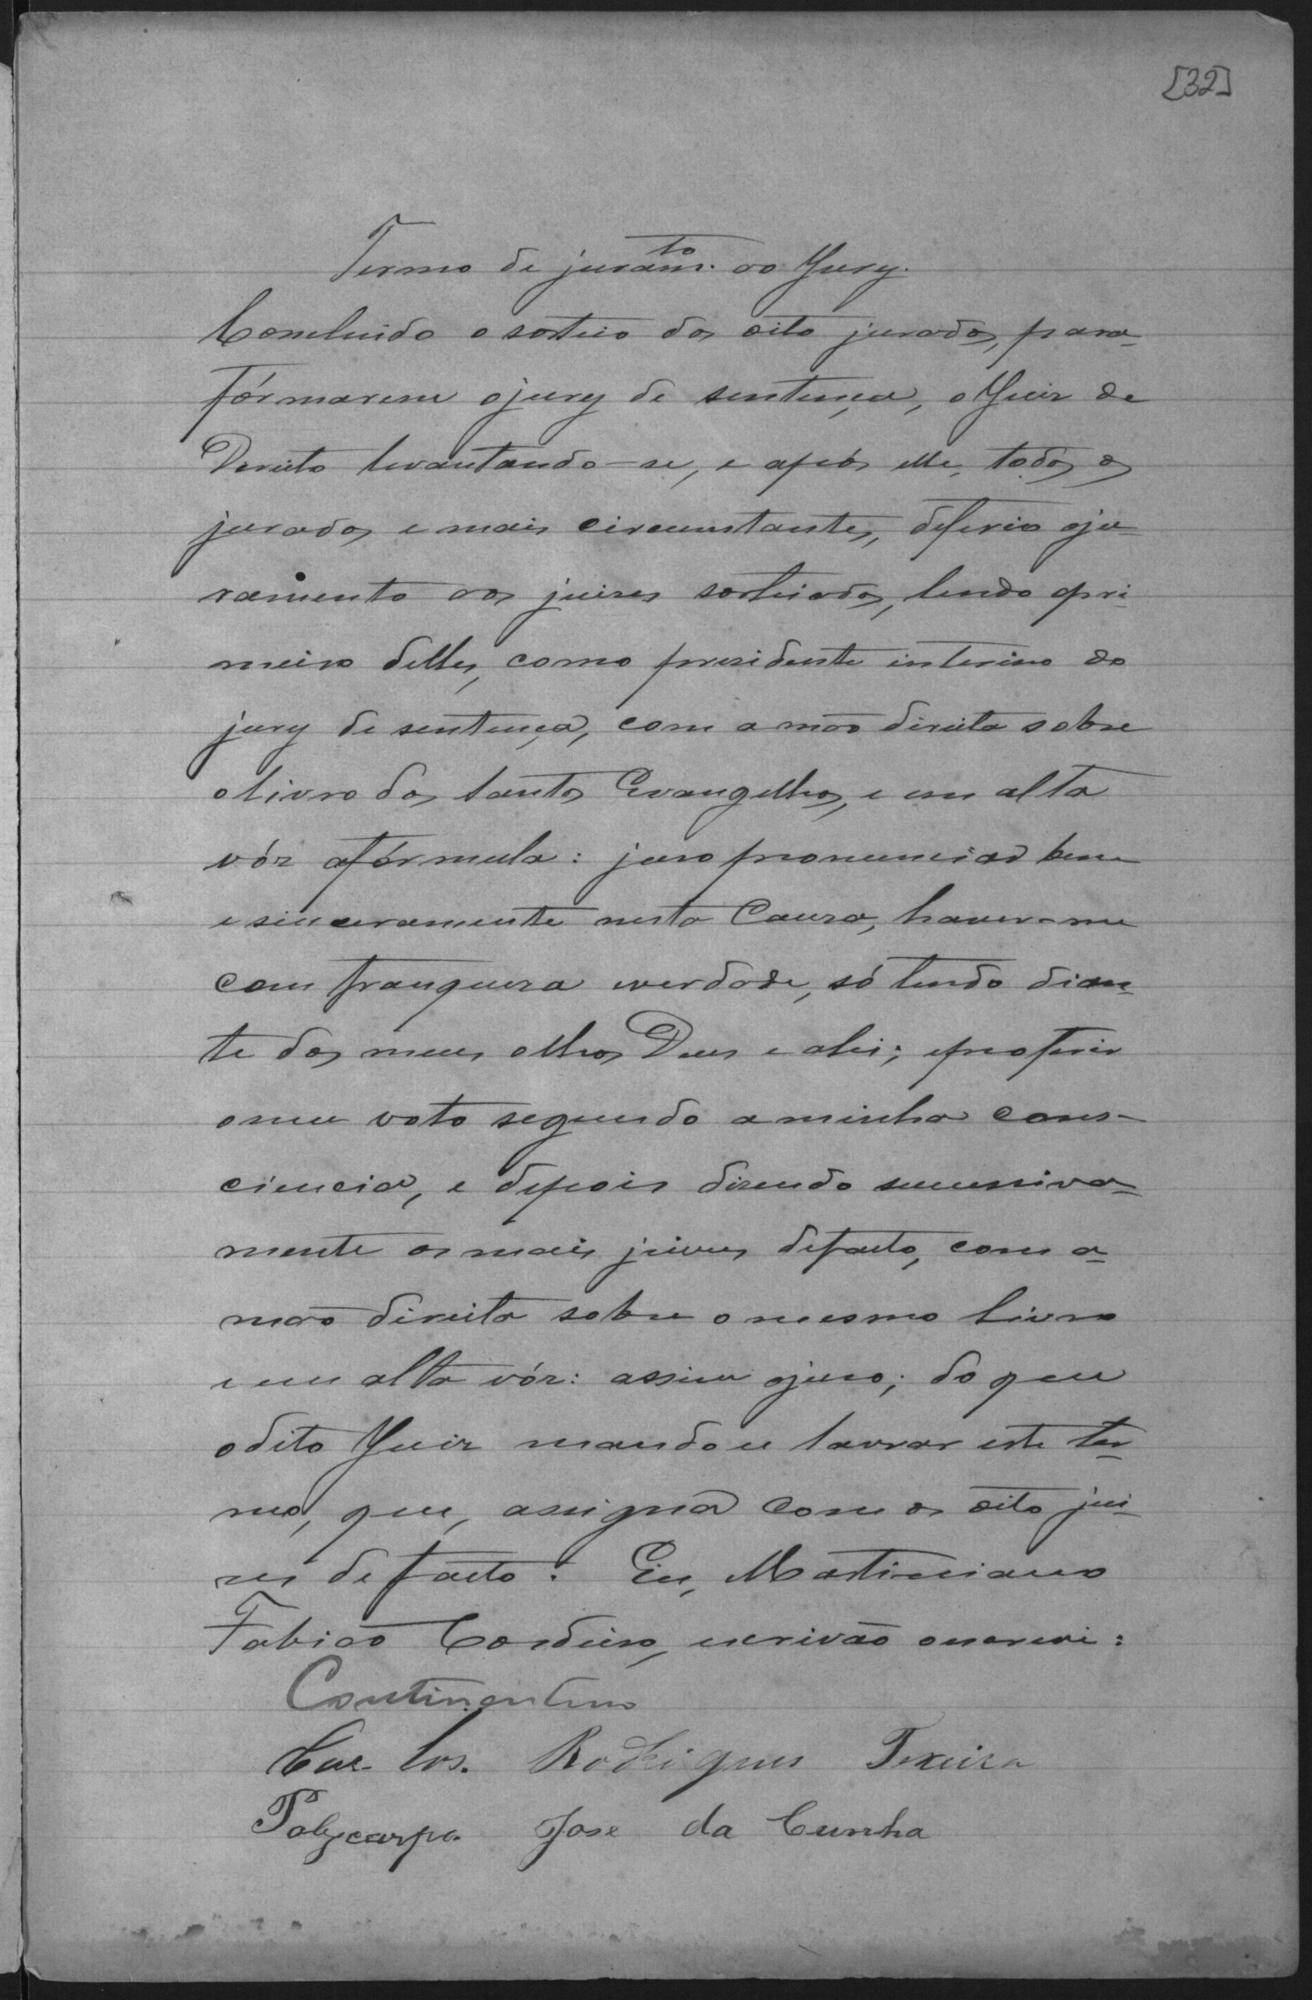 [32]
Termo de juram.to ao Jury.
Concluido o sorteio dos oito jurados, para
fórmarem o jury de sentença, o Juiz de
Direito levantando-se, e após elle, todos os
jurados e mais circumstantes, deferio o ju-
ramento aos juizes sorteiados, lendo o pri-
meiro delles, como presidente interino do
jury de sentença, com a mão direita sobre
o livro dos Santos Evangelhos, e em alta
vóz a fórmula: juro pronunciar bem
e sinceramente nesta Causa, haver-me
com franqueza e verdade, só tendo dian-
te dos meus olhos Deus e a lei; e proferir
o meu voto segundo a minha cons-
ciencia, e depois dizendo successiva-
mente os mais juizes de facto, com a
mão direita sobre o mesmo livro
e em alta vóz: assim o juro; do que
o dito Juiz mandou lavrar este ter-
mo, que, assigna com os oito jui-
zes de facto. Eu, Martiniano
Fabião Cordeiro, escrivão o escrevi:
Continentino
Carlos. Rodrigues Texeira
Polycarpo Jose da Cunha